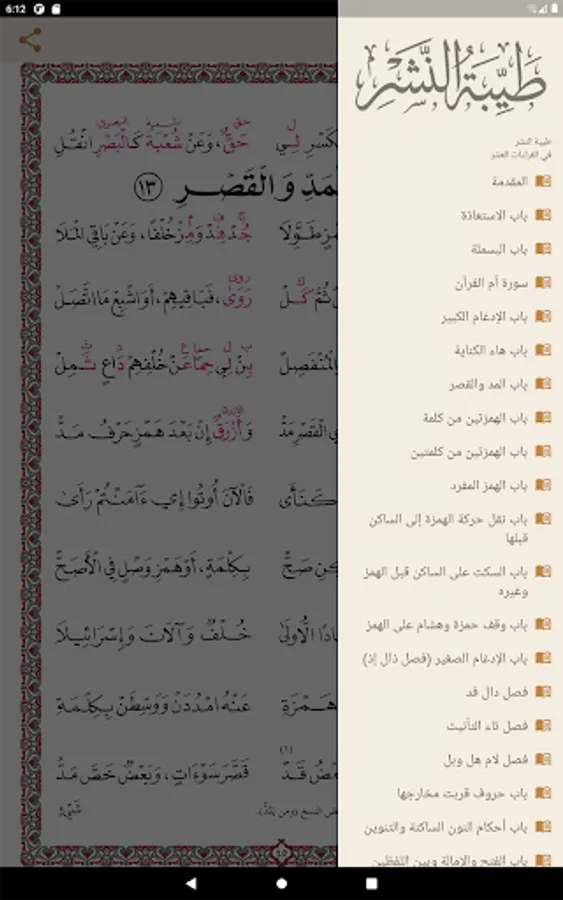 6:12
طَيِّبَةُ النَّشْرِ
طيبة النشر
في القراءات العشر
المقدمة
باب الاستعاذة
باب البسملة
سورة أم القرآن
باب الإدغام الكبير
باب هاء الكناية
باب المد والقصر
باب الهمزتين من كلمة
باب الهمزتين من كلمتين
باب الهمز المفرد
باب نقل حركة الهمزة إلى الساكن
قبلها
باب السكت على الساكن قبل الهمز
وغيره
باب وقف حمزة وهشام على الهمز
باب الإدغام الصغير (فصل ذال إذ)
فصل دال قد
فصل تاء التأنيث
فصل لام هل وبل
باب حروف قربت مخارجها
باب أحكام النون الساكنة والتنوين
باب الفتح والإمالة وبين اللفظين
حَقٌّ، وَعَنْ شُعْبَةَ كَالْبَصْرِ انْقُلِ
ـمَدِّ وَالْقَصْرِ (١٣)
جُدْ فِدْ وَمِزْ خُلْفًا، وَعَنْ بَاقِي الْمَلَا
رَوَى، فَبَاقِيهِمْ، أَوَ اشْبِعْ مَا اتَّصَلْ
بِنْ لِي حِمًا عَنْ خُلْفِهِمْ دَاعٍ ثَمِلْ
وَأَزْرَقٌ إِنْ بَعْدَ هَمْزٍ حَرْفُ مَدّْ
فَالْآنَ أُوتُوا إِي ءَآمَنْتُمْ رَأَىٰ
بِكِلْمَةٍ، أَوْ هَمْزِ وَصْلٍ فِي الْأَصَحّْ
خُلْفٌ وَآلَانَ وَإِسْرَائِيلَا
هَمْزَةِ عَنْهُ امْدُدَنْ وَوَسِّطَنْ بِكِلْمَةِ
قَصَّرَ سَوْءَاتٍ، وَبَعْضٌ خَصَّ مَدّْ